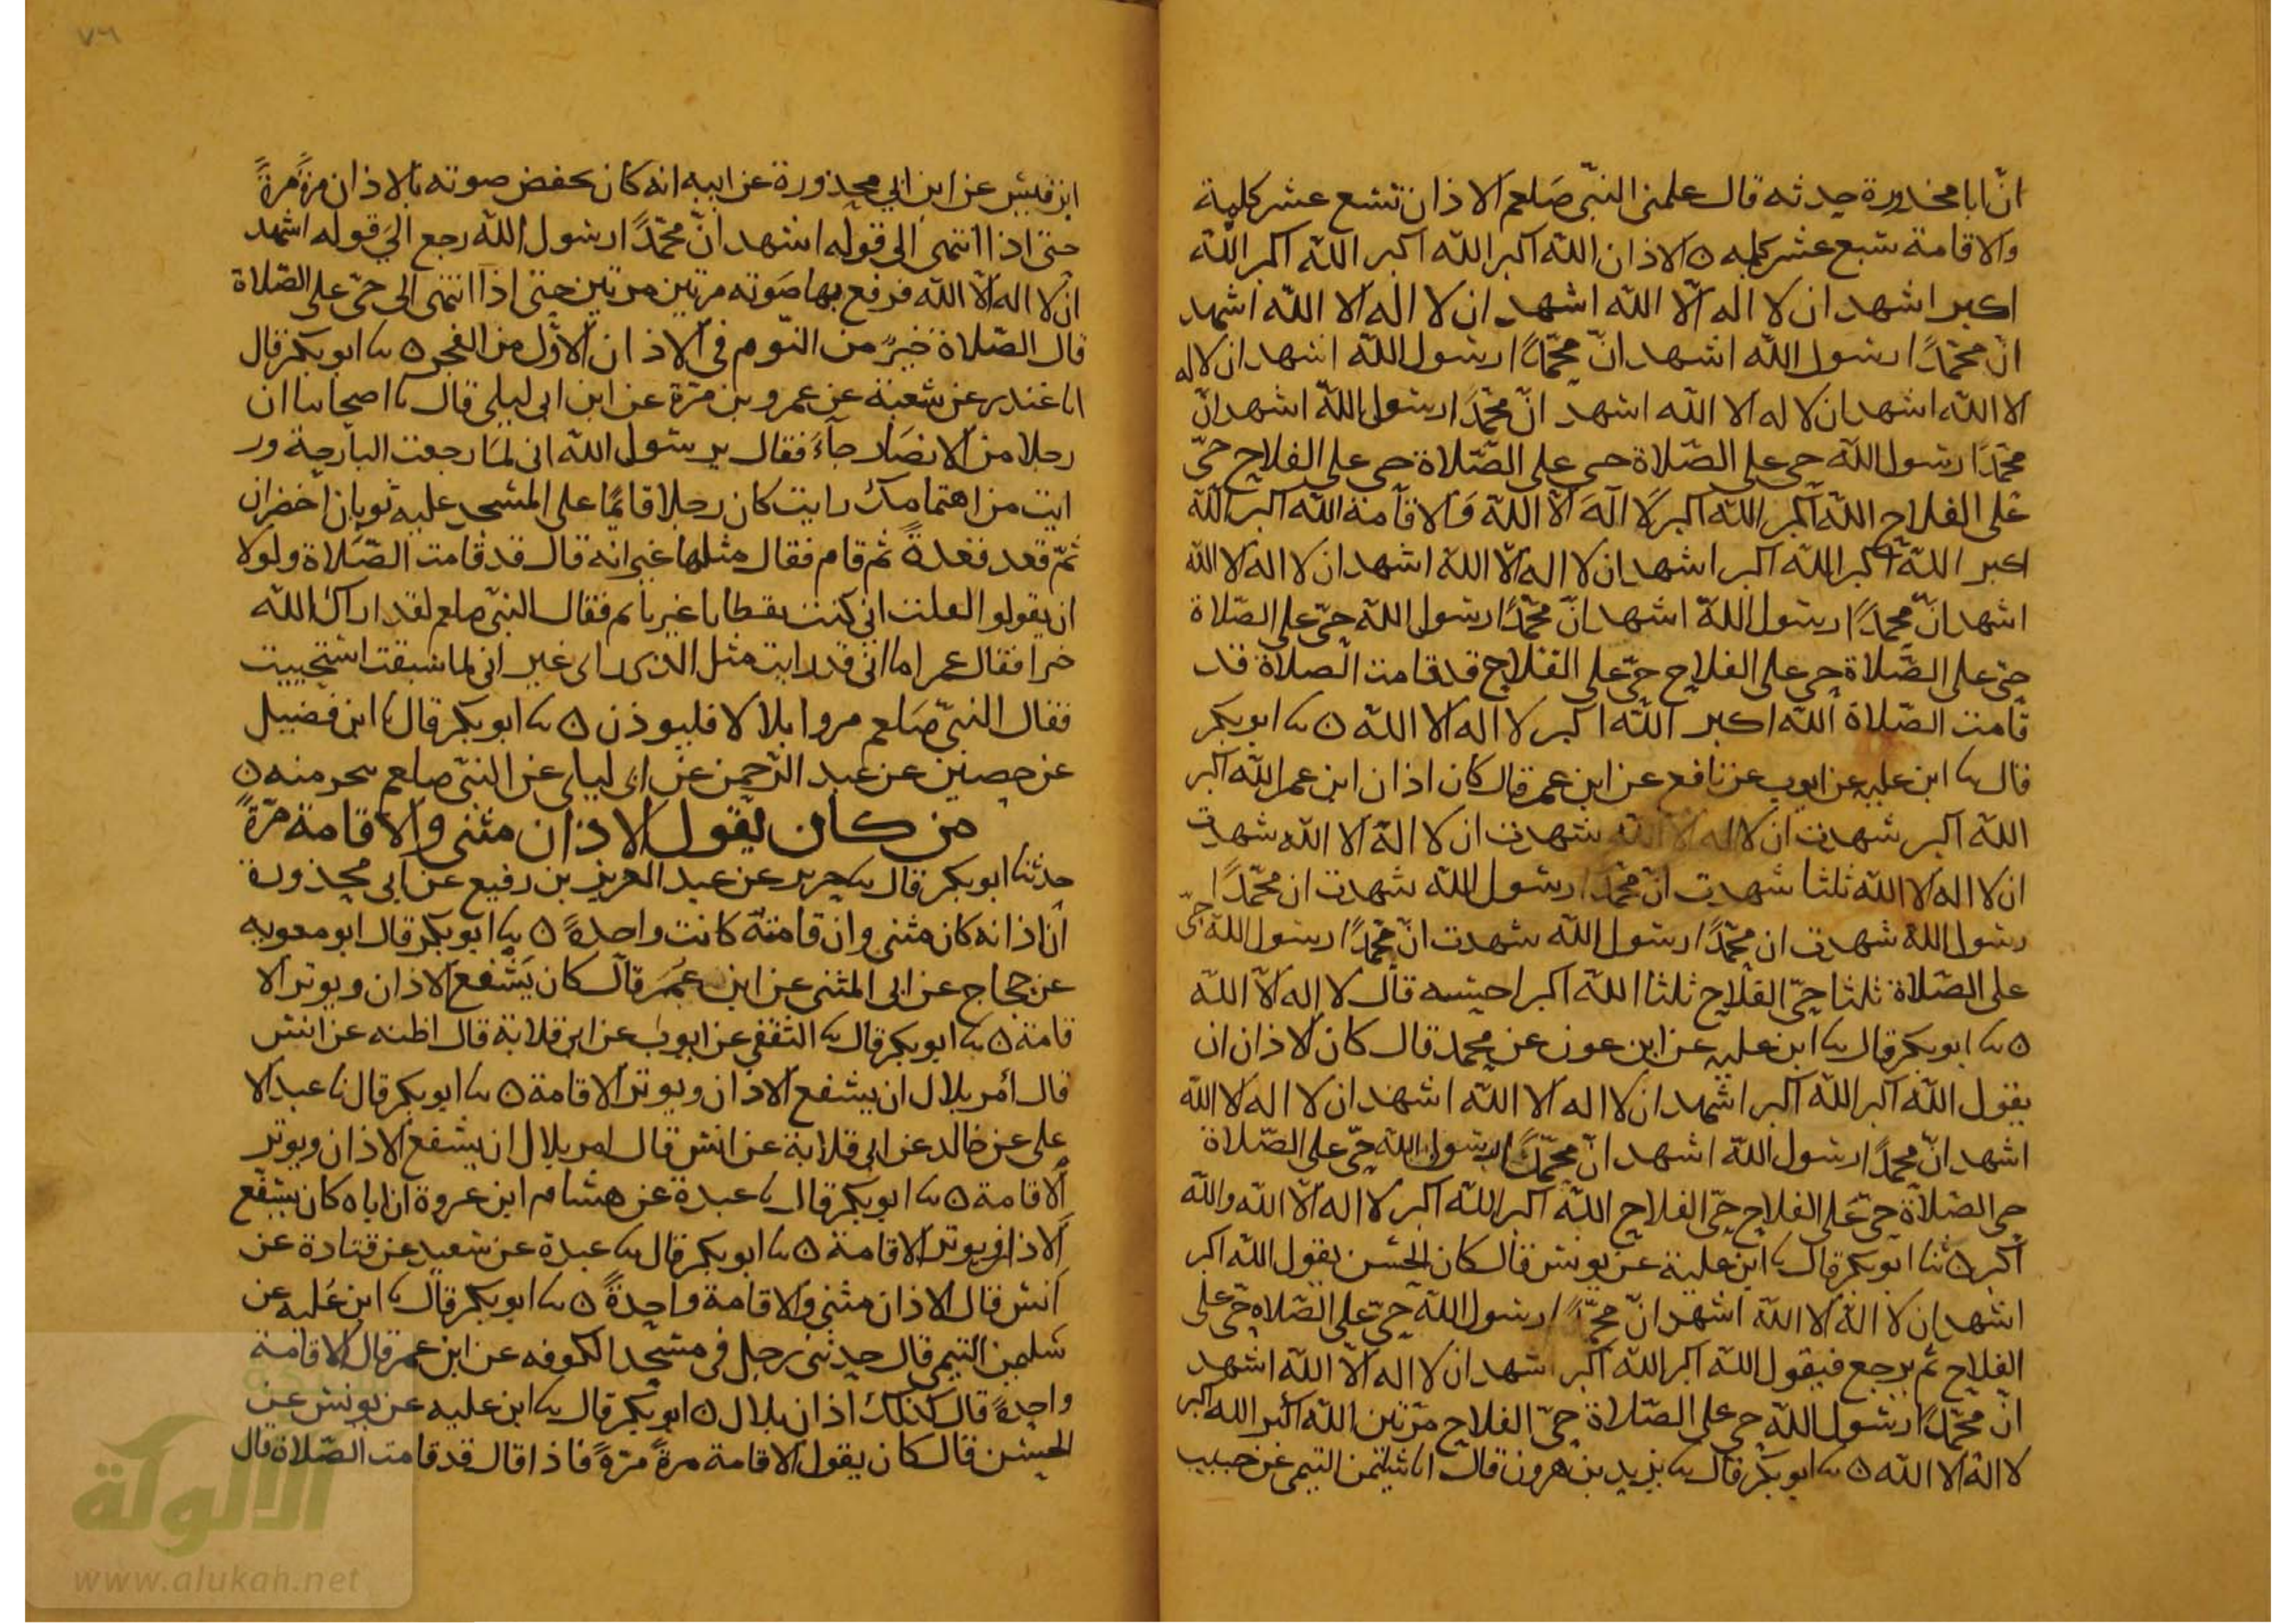 انّ ابا محذورة حدثه قال علمنى النبىّ صَلعم الاذان تسع عشر كلمة
والاقامة سبع عشر كلمه ۞ الاذان الله اكبر الله اكبر الله اكبر الله
اكبر اشهد ان لا اله الّا الله اشهد ان لا اله الا الله اشهد
انّ محمّدًا رسول الله اشهد انّ محمّدًا رسول الله اشهد ان لا له
الا الله اشهد ان لا له الا الله اشهد انّ محمّدًا رسول الله اشهد انّ
محمّدًا رسول الله حى على الصّلاة حى على الصّلاة حى على الفلاح حىّ
على الفلاح الله اكبر الله اكبر لا اله الّا الله والاقامة الله اكبر الله
اكبر الله اكبر الله اكبر اشهد ان لا اله الّا الله اشهد ان لا اله الا الله
اشهد انّ محمّدًا رسول الله اشهد انّ محمّدًا رسول الله حىّ على الصّلاة
حىّ على الصّلاة حى على الفلاح حىّ على الفلاح قد قامت الصلاة قد
قامت الصّلاة الله اكبر الله اكبر لا اله الا الله ۞ ثنا ابو بكر
قال ثنا ابن عليه عن ايوب عن نافع عن ابن عمر قال كان اذان ابن عمر الله اكبر
الله اكبر شهدت ان لا اله الا الله شهدت ان لا اله الا الله شهدت
ان لا اله الا الله ثلثا شهدت انّ محمّدًا رسول الله شهدت ان محمّدًا
رسول الله شهدت ان محمّدًا رسول الله شهدت انّ محمّدًا رسول الله حىّ
على الصّلاة ثلثا حىّ الفلاح ثلثا الله اكبر احسبه قال لا اله الّا الله
۞ ثنا ابو بكر قال ثنا ابن عليه عن ابن عون عن محمد قال كان الاذان ان
يقول الله اكبر الله اكبر اشهد ان لا اله الا الله اشهد ان لا اله الا الله
اشهد انّ محمدًا رسول الله اشهد انّ محمّدًا رسول الله حىّ على الصّلاة
حى الصّلاة حىّ على الفلاح حىّ الفلاح الله اكبر الله اكبر لا اله الّا الله والله
اكبر ۞ ثنا ابو بكر قال ثنا ابن علية عن يونس قال كان الحسن يقول الله اكبر
اشهد ان لا اله الا الله اشهد انّ محمّدًا رسول الله حىّ على الصّلاه حىّ على
الفلاح ثم يرجع فيقول الله اكبر الله اكبر اشهد ان لا اله الّا الله اشهد
انّ محمّدًا رسول الله حى على الصّلاة حىّ الفلاح مرّتين الله اكبر الله اكبر
لا اله الا الله ۞ ثنا ابو بكر قال ثنا يزيد بن هرون قال انا سليمن التيمى عن حبيب
٧٦
ابن قيس عن ابن ابي محذورة عن ابيه انه كان يخفض صوته بالاذان مرةً مرةً
حتى اذا انتهى الى قوله اشهد انّ محمّدًا رسول الله رجع الى قوله اشهد
ان لا اله الّا الله فرفع بها صَوته مرتين مرتين حتى اذا انتهى الى حىّ على الصّلاة
قال الصّلاة خيرٌ من النّوم فى الاذان الاوّل من الفجر ۞ ثنا ابو بكر قال
انا غندر عن شعبة عن عمرو بن مرّة عن ابن ابى ليلى قال ثنا اصحابنا ان
رجلا من الانصَار جآءَ فقال يرسول الله انى لمّا رجعت البارحة ور
ايت من اهتمامك رايت كان رجلا قائمًا على المسجد عليه ثوبان اخضران
ثمّ قعد قعدةً ثم قام فقال مثلها غير انه قال قد قامت الصّلاة ولولا
ان يقولوا لقلت انى كنت يقظانا غير نائم فقال النبىّ صلعم لقد اراك الله
خيرا فقال عمر اما انّى قد رايت مثل الذى راى غير انى لما سبقت استحييت
فقال النبىّ صَلعم مروا بلالا فليوذن ۞ ثنا ابو بكر قال ثنا ابن فضيل
عن حصين عن عبد الرّحمن عن ابى ليلى عن النبىّ صلعم بنحو منه ۞
من كان يقول الاذان مثنى والاقامة مرّةً
حدثنا ابو بكر قال ثنا جرير عن عبد العزيز بن رفيع عن ابى محذورة
انّ اذانه كان مثنى وان قامته كانت واحدةً ۞ ثنا ابو بكر قال ابو معويه
عن حجاج عن ابى المثنى عن ابن عُمَر قال كان يَشفع الاذان ويوتر الا
قامة ۞ ثنا ابو بكر قال ثنا الثقفى عن ايوب عن ابى قلابة قال اظنه عن انس
قال أمر بلال ان يشفع الاذان ويوتر الاقامة ۞ ثنا ابو بكر قال ثنا عبد الا
على عن خالد عن ابى قلابة عن انس قال امر بلال ان يشفع الاذان ويوتر
الاقامة ۞ ثنا ابو بكر قال ثنا عبدة عن هشام ابن عروة ان اباه كان يشفع
الاذان ويوتر الاقامة ۞ ثنا ابو بكر قال ثنا عبدة عن سعيد عن قتادة عن
انس قال الاذان مثنى والاقامة واحدةً ۞ ثنا ابو بكر قال ثنا ابن عُليه عن
سليمن التيمى قال حدثنى رجل فى مسجد الكوفه عن ابن عمر قال الاقامة
واحدةً قال كذلك اذان بلال ۞ ابو بكر قال ثنا ابن عليه عن يونس عن
الحسن قال كان يقول الاقامة مرةً مرّةً فاذا قال قد قامت الصّلاة قال
شبكة
الألوكة
www.alukah.net